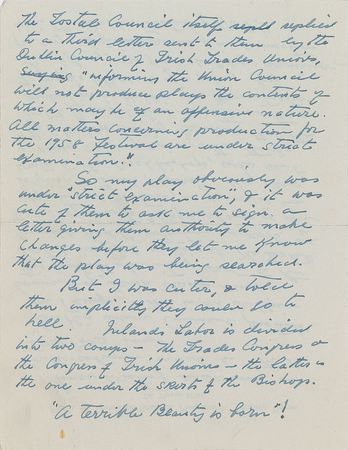 The Tostal Council itself replied
to a third letter sent to them by the
Dublin Council of Irish Trades Unions,
"informing the Union Council
will not produce plays the contents of
which may be of an offensive nature.
All matters concerning production for
the 1958 festival are under strict
examination."
So my play, obviously was
under "strict examination", & it was
cute of them to ask me to sign a
letter giving them authority to make
changes before they let me know
that the play was being searched.
But I was cuter, & told
them implicitly they could go to
hell. Ireland's Labor is divided
into two camps – The Trades Congress &
the Congress of Irish Unions – the latter is
the one under the skirts of the Bishops.
"A terrible Beauty is born"!